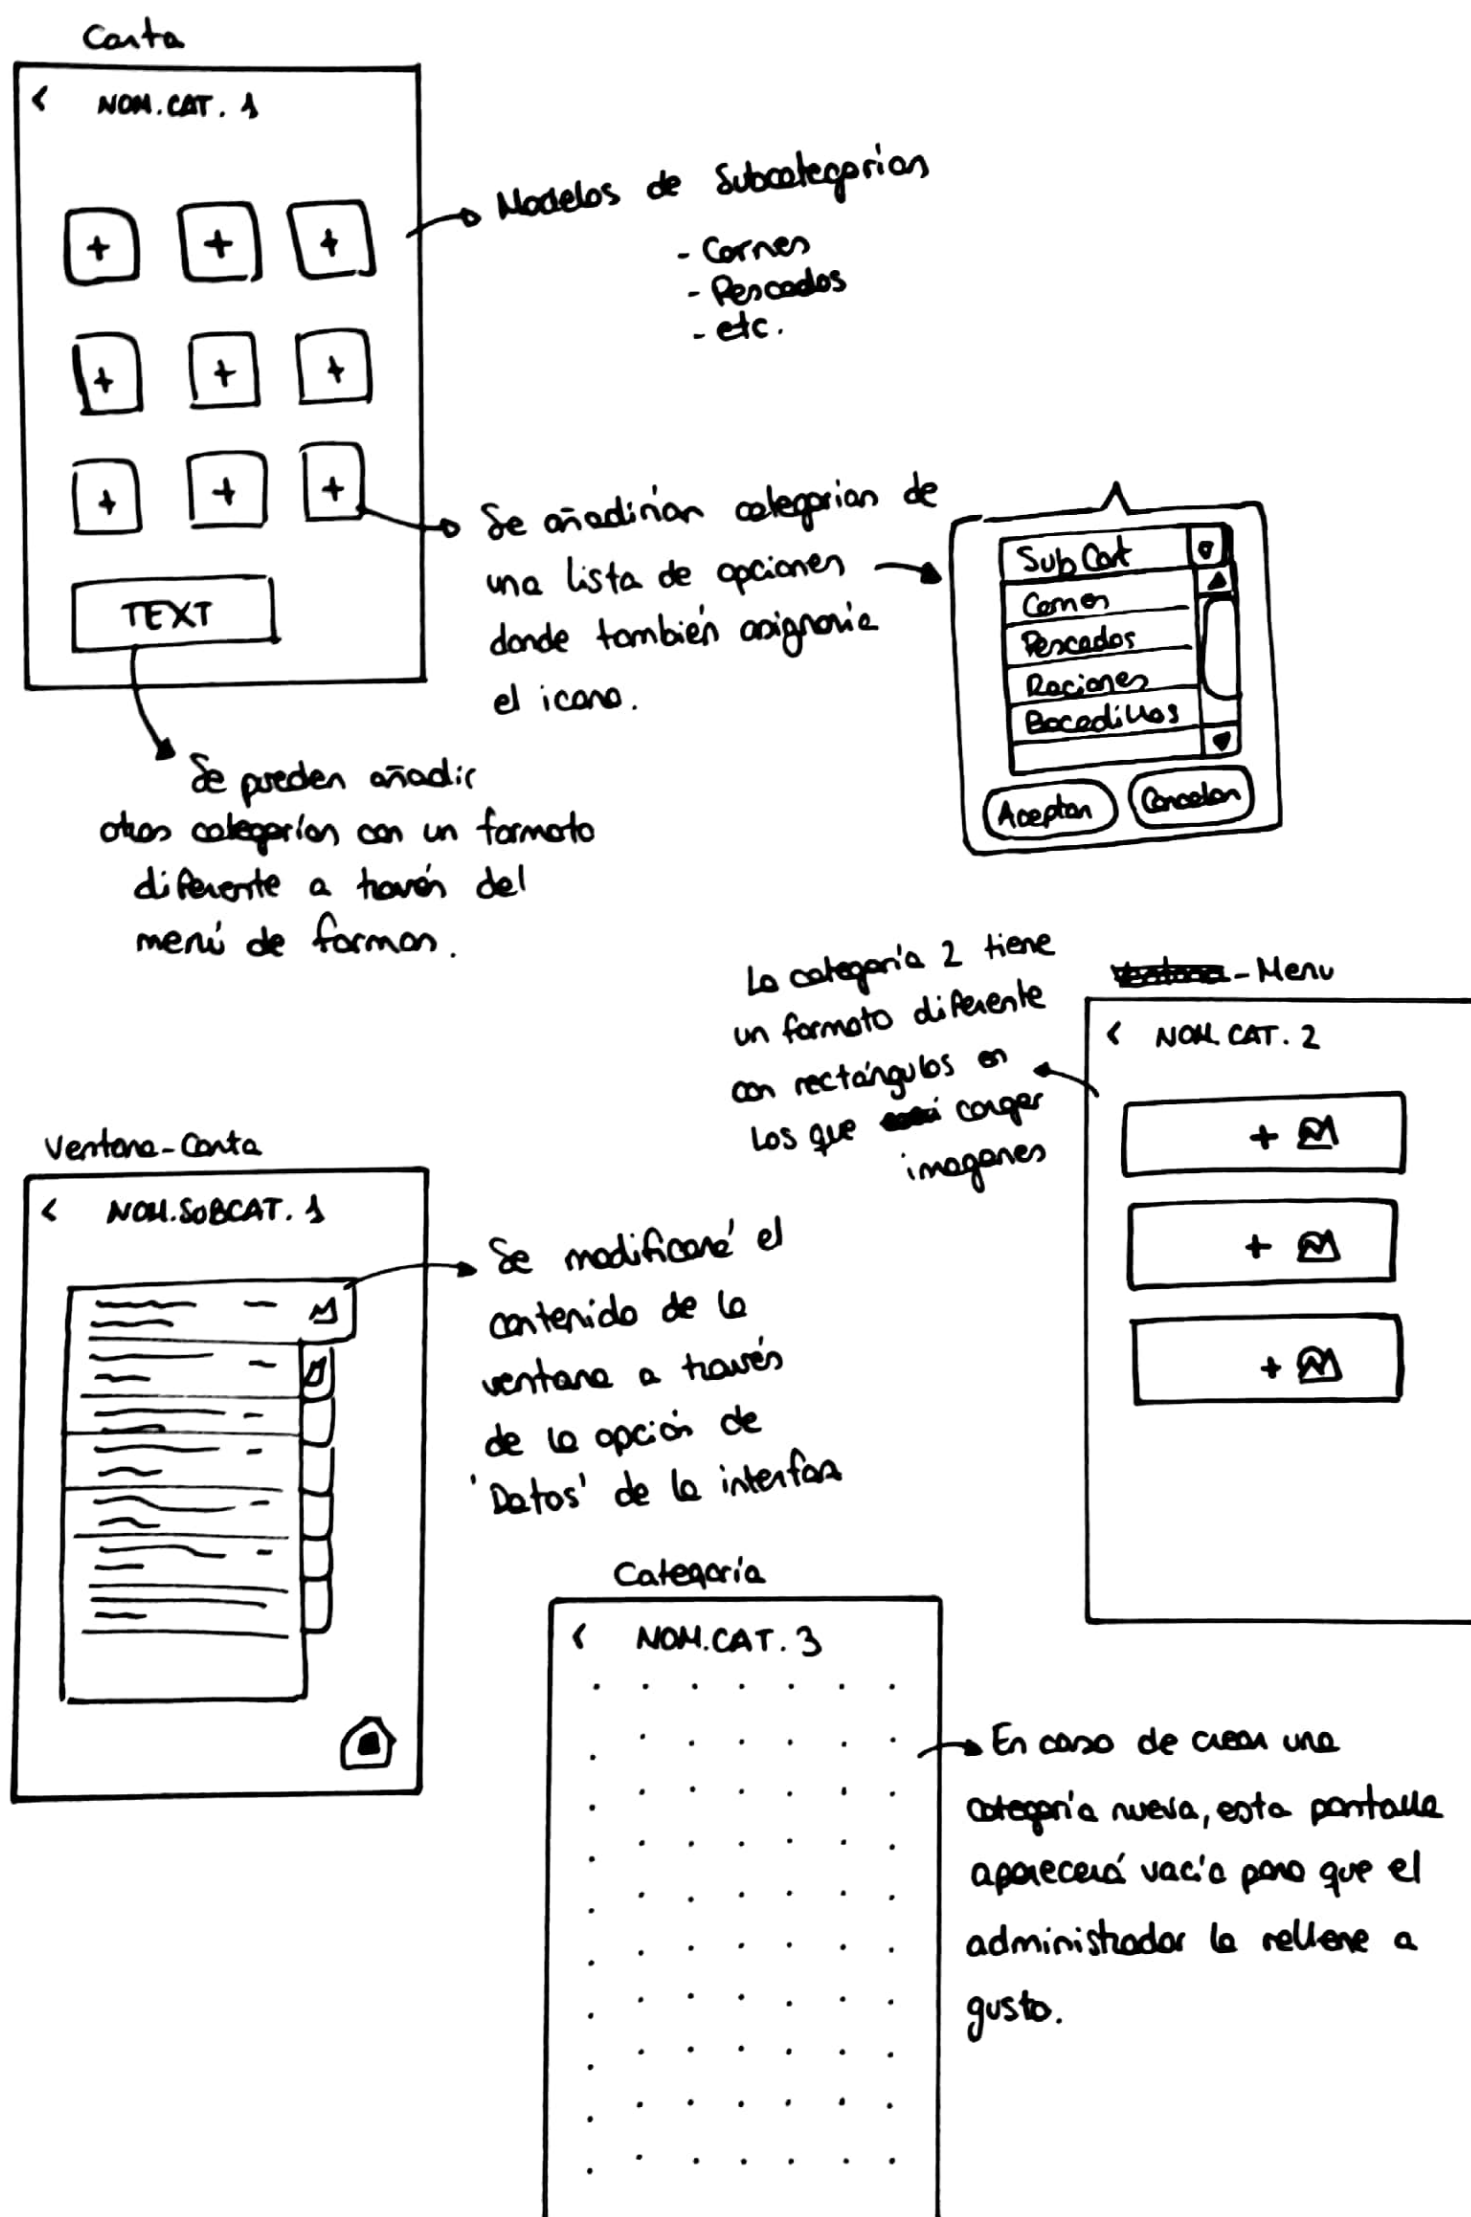 Carta
< NOM.CAT. 1
+ + +
+ + +
+ + +
TEXT
Modelos de Subcategorías
- Carnes
- Pescados
- etc.
Se añadirían categorías de
una lista de opciones
donde también asignaría
el icono.
SubCat
Carnes
Pescados
Raciones
Bocadillos
Aceptar
Cancelar
Se pueden añadir
otras categorías con un formato
diferente a través del
menú de formas.
La categoría 2 tiene
un formato diferente
con rectángulos en
los que cargar
imagenes
- Menu
< NOM. CAT. 2
+
+
+
Ventana-Carta
< NOM.SUBCAT. 1
Se modificará el
contenido de la
ventana a través
de la opción de
'Datos' de la interfaz
Categoría
< NOM.CAT. 3
En caso de crear una
categoría nueva, esta pantalla
aparecerá vacía para que el
administrador la rellene a
gusto.